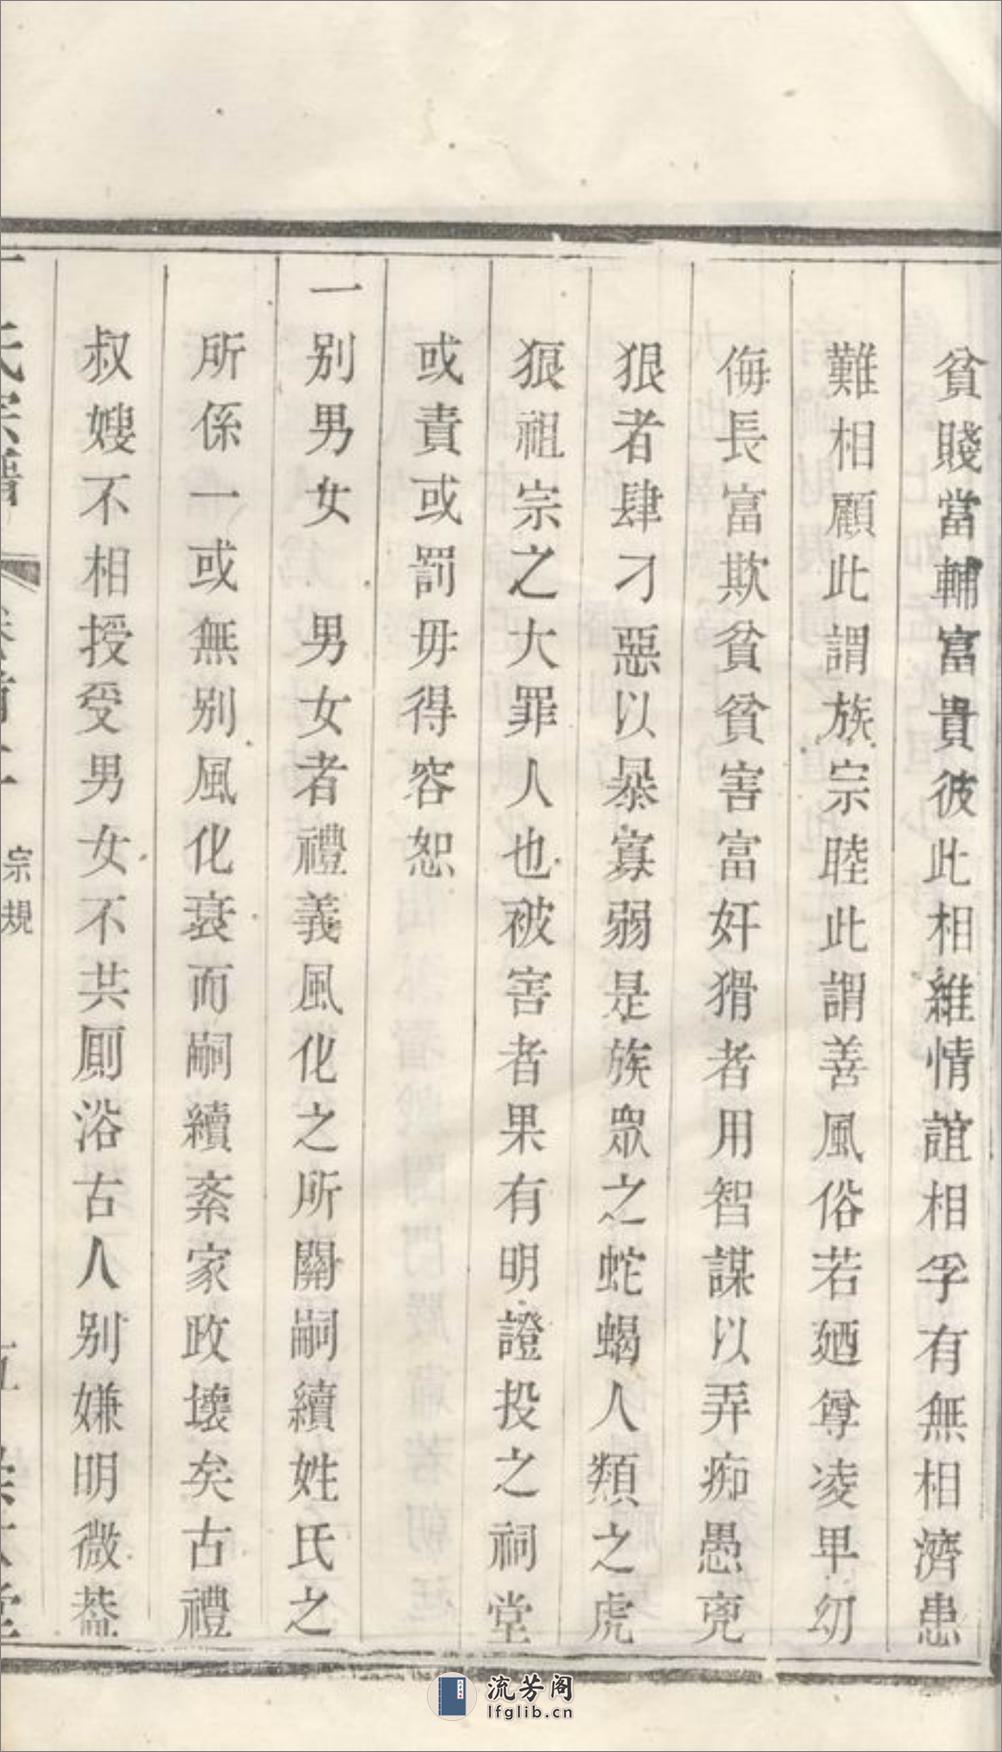 貧賤當輔富貴彼此相維情誼相孚有無相濟患
難相顧此謂族宗睦此謂善風俗若廼尊凌卑幼
侮長富欺貧貧害富奸猾者用智謀以弄痴愚兇
狠者肆刁惡以暴寡弱是族眾之蛇蝎人類之虎
狼祖宗之大罪人也被害者果有明證投之祠堂
或責或罰毋得容恕
一別男女　男女者禮義風化之所關嗣續姓氏之
所係一或無別風化衰而嗣續紊家政壞矣古禮
叔嫂不相授受男女不共厠浴古人別嫌明微葢
氏宗譜
宗規
流芳阁
lfglib.cn